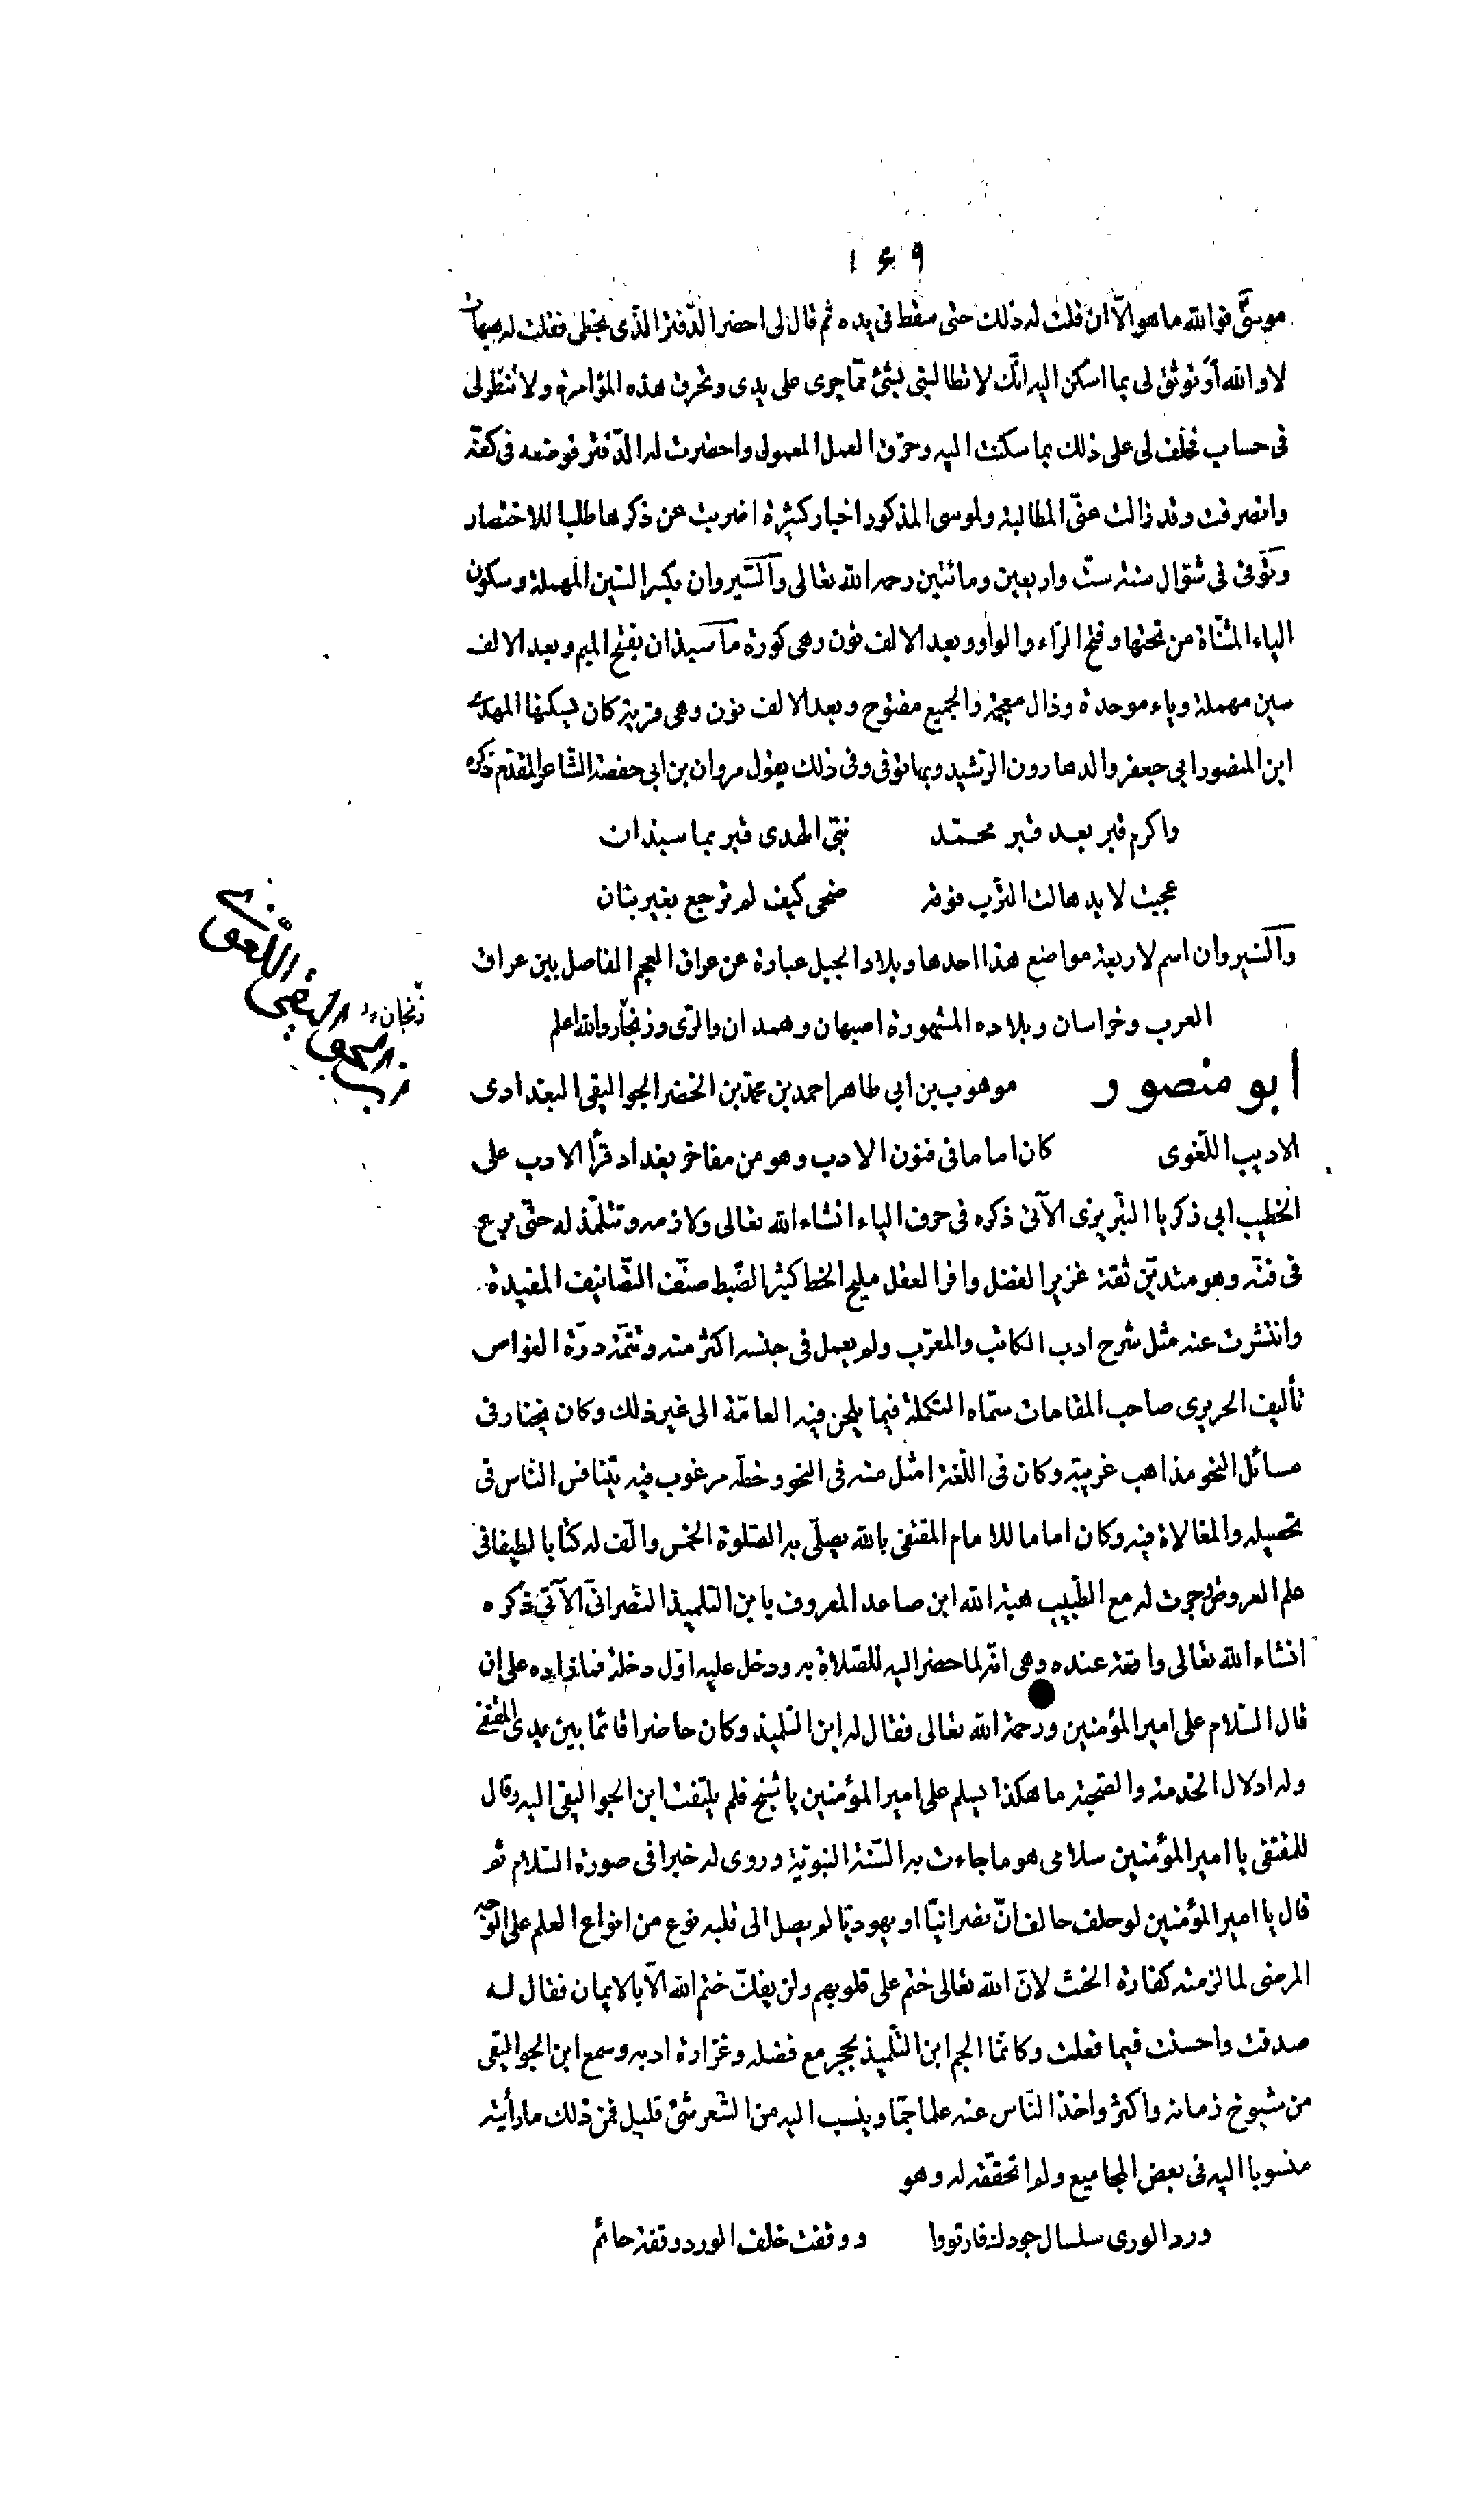 ۱۶۹
موسى فوالله ما هو الّا ان قلت له ذلك حتى سقط فى يده ثم قال لى احضر الدّفتر الذّى بخطى فقلت له هيهات
لا والله أو توثق لى بما اسكن اليه انّك لا تطالبنى بشئ ممّا جرى على يدى وتخرق هذه المؤامرة ولا تنظر لى
فى حساب فحلف لى على ذلك بما سكنت اليه وخرّق العمل المعمول واحضرت له الدّفتر فوضعه فى كمّه
وانصرفت وقد زالت عنّى المطالبة ولموسى المذكور اخبار كثيرة اضربت عن ذكرها طلبا للاختصار
وتوفى فى شوال سنة ستّ واربعين ومائتين رحمه الله تعالى والسّيروان بكسر السّين المهملة وسكون
الياء المثنّاة من تحتها وفتح الرّاء والواو وبعد الالف نون وهى كورة ماسبذان بفتح الميم وبعد الالف
سين مهملة وباء موحدة وذال معجمة والجميع مفتوح وبعد الالف نون وهى قرية كان يسكنها المهدى
ابن المنصور ابى جعفر والد هارون الرّشيد وبها توفى وفى ذلك يقول مروان بن ابى حفصة الشّاعر المقدّم ذكره
واكرم قبر بعد قبر محمّد نبىّ الهدى قبر بماسبذان
عجبت لايد هالت التّرب فوقه ضحى كيف لم ترجع بغير بنان
والسّيروان اسم لاربعة مواضع هذا احدها وبلاد الجبل عبارة عن عراق العجم الفاصل بين عراق
العرب وخراسان وبلاده المشهورة اصبهان وهمدان والرّى وزنجار والله اعلم
زنجان
ابن الجواليقى اللّغوى
ابو منصور موهوب بن ابى طاهر احمد بن محمّد بن الخضر الجواليقى البغدادى
الاديب اللّغوى كان اماما فى فنون الادب وهو من مفاخر بغداد قرأ الادب على
الخطيب ابى ذكريا التّبريزى الآتى ذكره فى حرف الياء انشاء الله تعالى ولازمه وتتلمّذ له حتّى برع
فى فنّه وهو متديّن ثقة غزير الفضل وافر العقل مليح الخط كثير الضّبط صنّف التّصانيف المفيدة
وانتشرت عنه مثل شرح ادب الكاتب والمعرّب ولم يعمل فى جنسه اكثر منه وتتمّة درّة الغواص
تأليف الحريرى صاحب المقامات سمّاه التكملة فيما يلحن فيه العامّة الى غير ذلك وكان يختار فى
مسائل النحو مذاهب غريبة وكان فى اللّغة امثل منه فى النحو وخطّه مرغوب فيه يتنافس النّاس فى
تحصيله والمغالاة فيه وكان اماما للامام المقتفى بالله يصلّى به الصّلوة الخمس والّف له كتابا لطيفا فى
علم العروض وجرت له مع الطّبيب هبة الله ابن صاعد المعروف بابن التلميذ النّصرانىّ الآتى ذكره
انشاء الله تعالى واقعة عنده وهى انّه لما حضر اليه للصّلاة به ودخل عليه اوّل دخلة فما زاده على ان
قال السّلام على امير المؤمنين ورحمة الله تعالى فقال له ابن التلميذ وكان حاضرا قائما بين يدى المقتفى
وله ادلال الخدمة والصّحبة ما هكذا يسلم على امير المؤمنين يا شيخ فلم يلتفت ابن الجواليقى اليه وقال
للمقتفى يا امير المؤمنين سلامى هو ما جاءت به السّنة النبويّة وروى له خبرا فى صورة السّلام ثم
قال يا امير المؤمنين لو حلف حالف انّ نصرانيّا او يهوديّا لم يصل الى قلبه نوع من انواع العلم على الوجه
المرضى لما لزمته كفارة الحنث لانّ الله تعالى ختم على قلوبهم ولن يفكّ ختم الله الّا بالايمان فقال له
صدقت واحسنت فيما فعلت وكانّما الجم ابن التّلميذ بحجر مع فضله وغزارة ادبه وسمع ابن الجواليقى
من شيوخ زمانه واكثر واخذ النّاس عنه علما جمّا وينسب اليه من الشّعر شئ قليل فمن ذلك ما رأيته
منسوبا اليه فى بعض المجاميع ولم اتحقّقه له وهو
ورد الورى سلسال جودك فارتووا ووقفت خلف الورد وقفة حائم